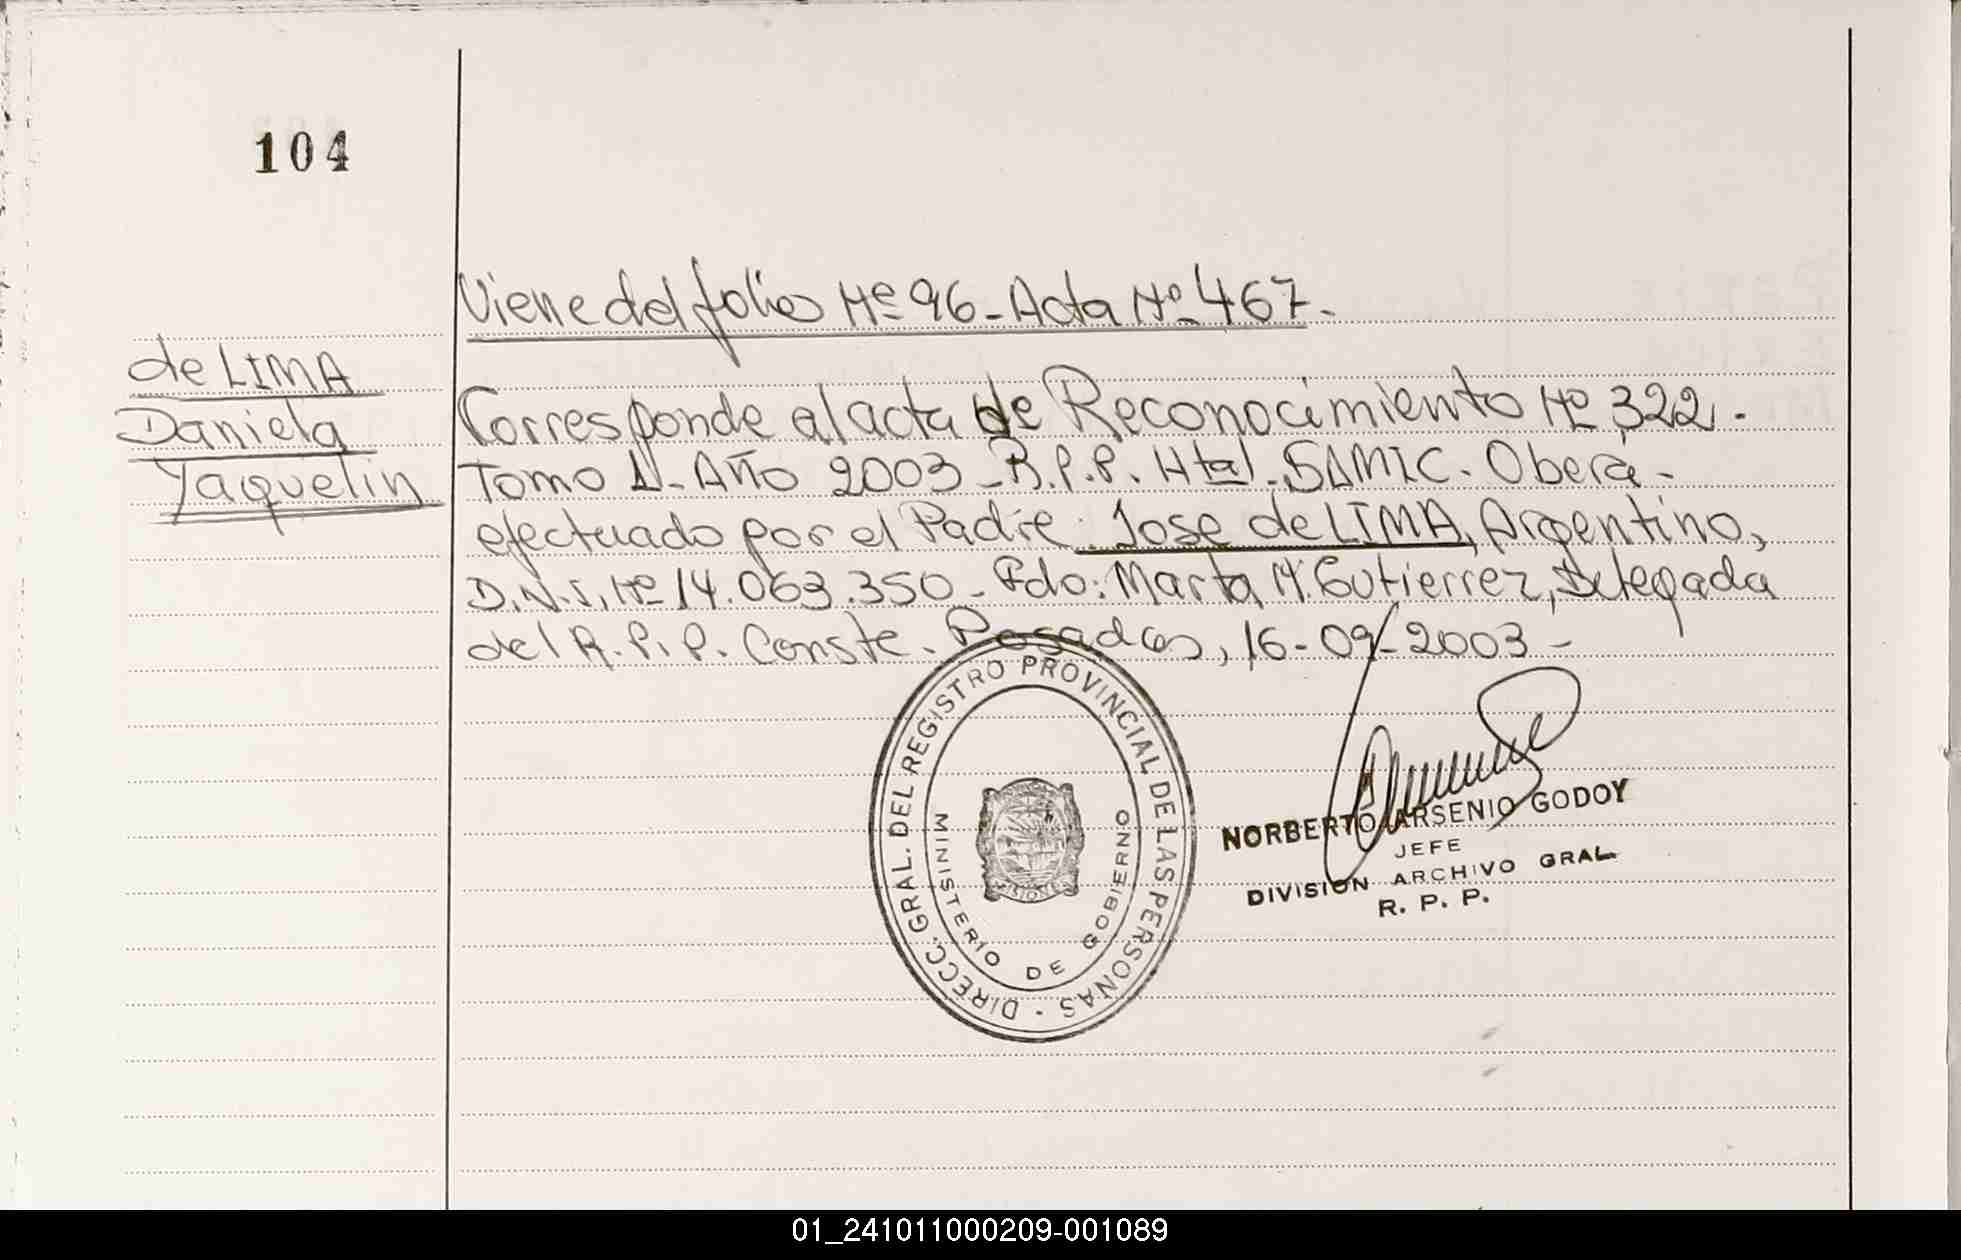 104
Viene del folio Nº 96 - Acta Nº 467.-
de LIMA
Daniela
Yaquelin
Corresponde al acta de Reconocimiento Nº 322.-
Tomo 1º - Año 2003 - R.P.P. Htal. SAMIC. Oberá -
efectuado por el Padre: Jose de LIMA, Argentino,
D.N.I. Nº 14.063.350 - Fdo: Marta M. Gutierrez, Delegada
del R.P.P. Conste. Posadas, 16-09-2003 -
DIRECC. GRAL. DEL REGISTRO PROVINCIAL DE LAS PERSONAS ·
MINISTERIO DE GOBIERNO
MISIONES
NORBERTO ARSENIO GODOY
JEFE
DIVISION ARCHIVO GRAL
R. P. P.
01_241011000209-001089